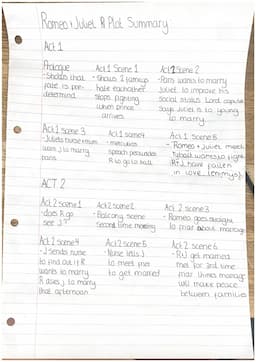 Romeo + Juliet Plot Summary
Act 1
Prologue
- Shows that
fate is pre-
determind.
Act 1 Scene 1
- Shows 2 families
hate eachother
Stops fighting
when prince
arrives
Act 1 Scene 2
- Paris wants to marry
Juliet to improve his
social status Lord capulet
says Juliet is to young
to marry
Act 1 Scene 3
- Juliets nurse + mum
want J to marry
paris
Act 1 scene 4
- mercutios
speach persuades
R to go to ball
Act 1 Scene 5
- Romeo + Juliet meet
tybalt wants to fight
R+J have fallen
in love (enemys)
ACT 2
Act 2 scene 1
- does R go
see J?
Act 2 scene 2
- Balcony scene
Second time meeting
Act 2 scene 3
- Romeo goes straight
to friar about marriage
Act 2 scene 4
- J sends nurse
to find out if R
wants to marry
R asks J to marry
that afternoon
Act 2 scene 5
- Nurse tells J
to meet friar
to get married
Act 2 scene 6
- R+J get married
met for 3rd time
friar thinks marriage
will make peace
between families